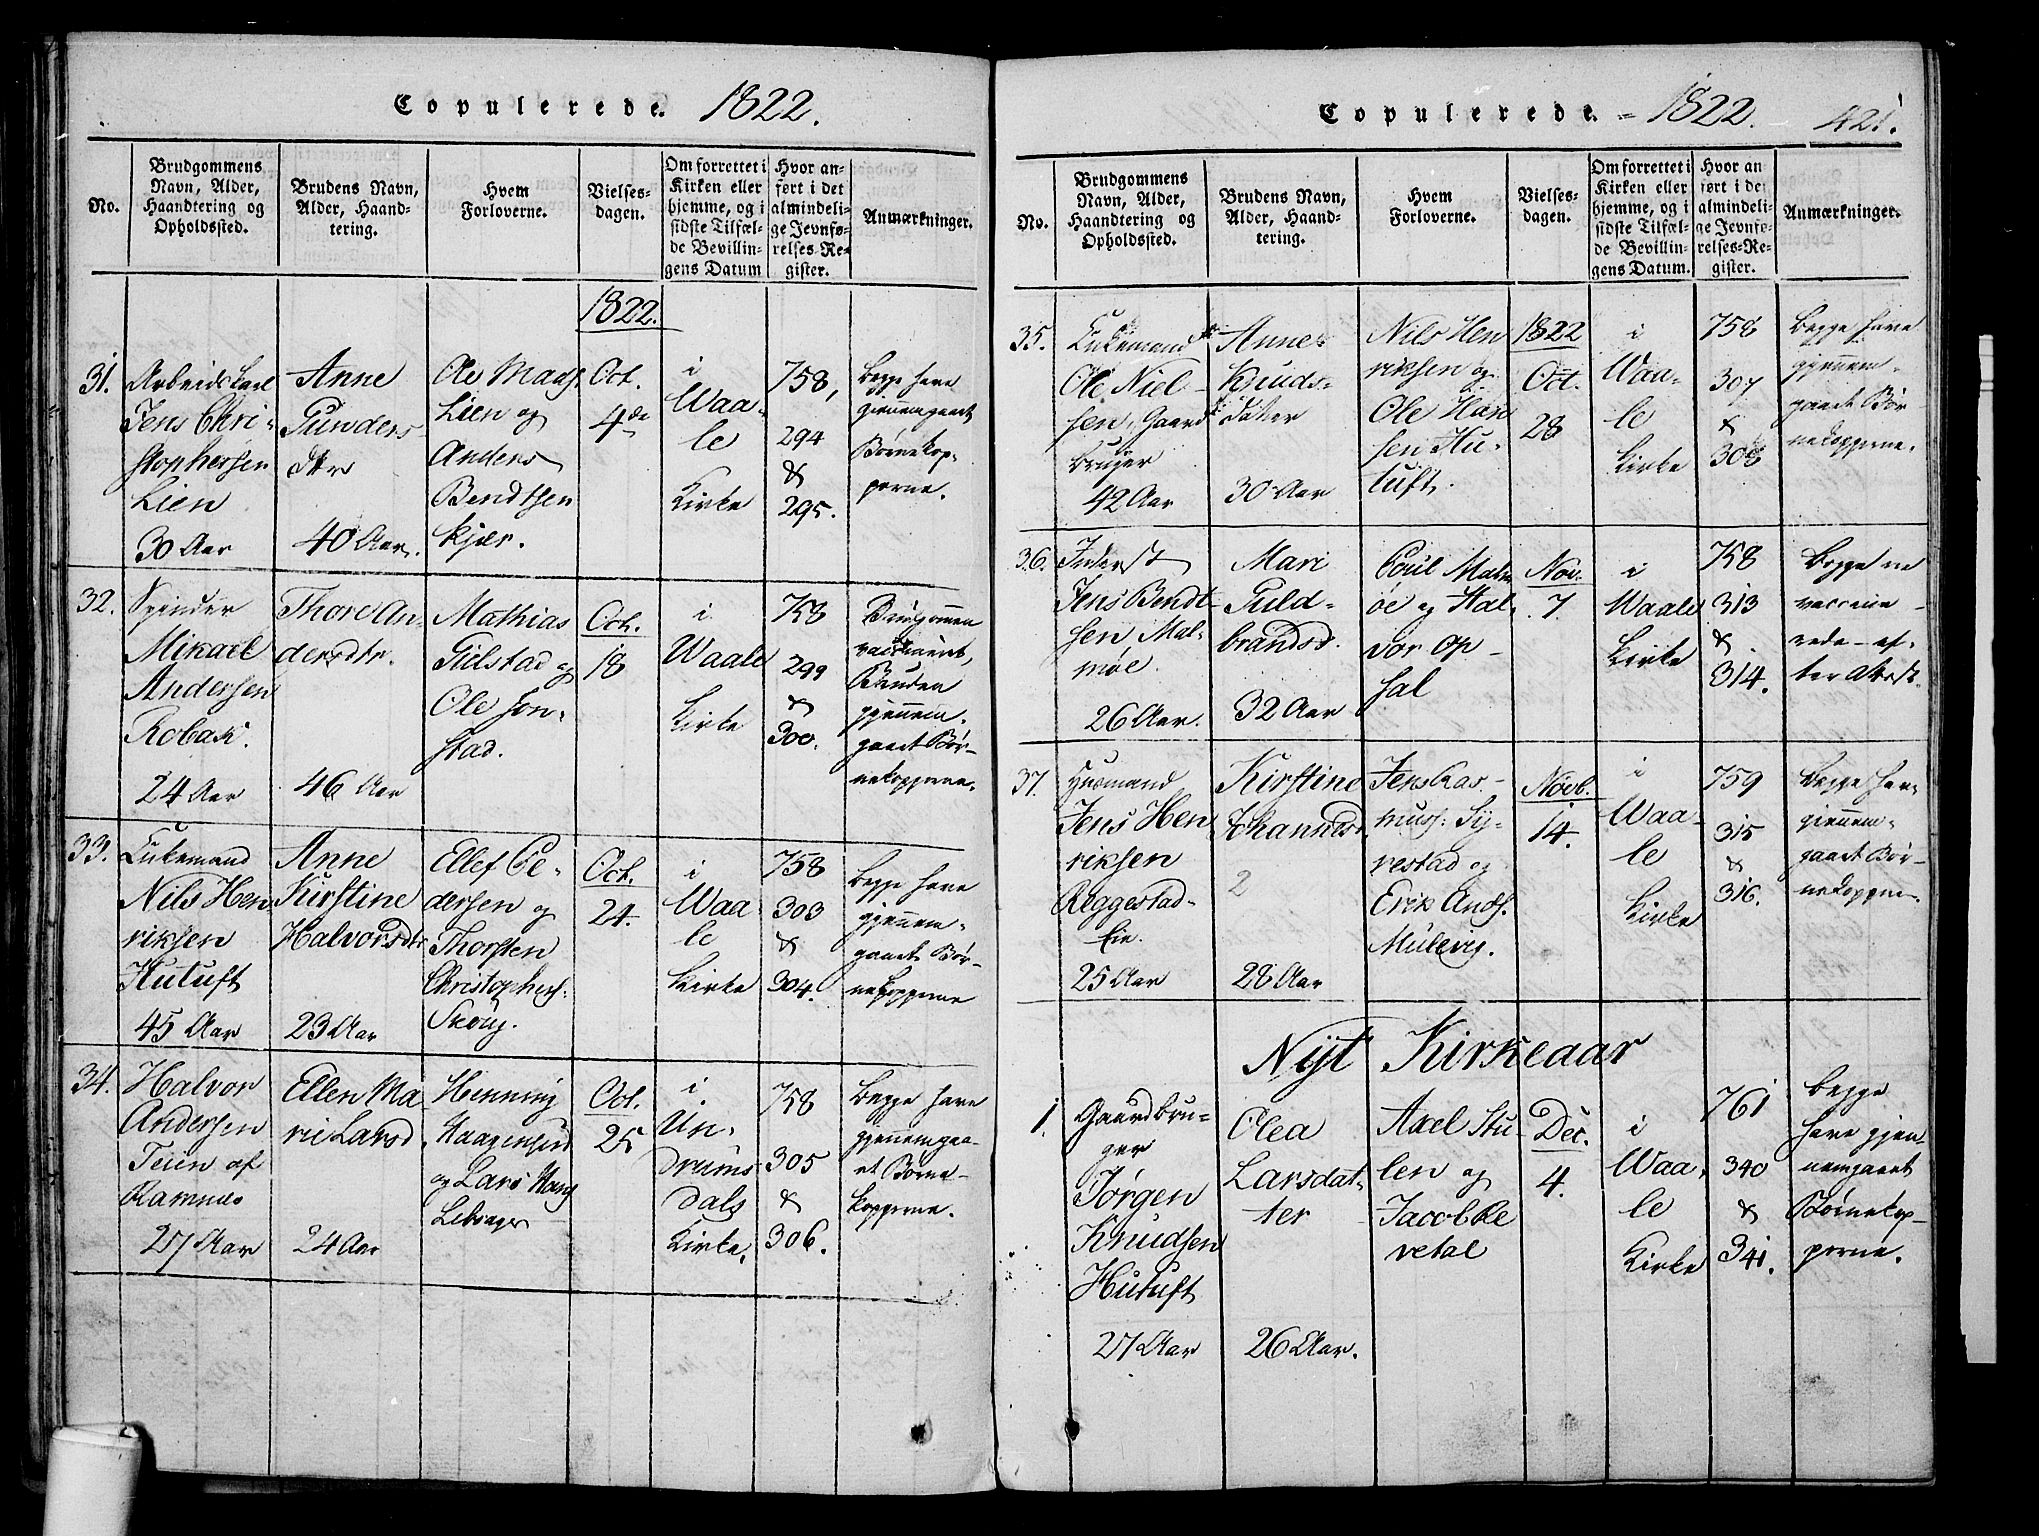 Copulerede. 1822.
No.
Brudgommens
Navn, Alder,
Haandtering og
Opholdssted.
Brudens Navn,
Alder, Haand-
tering.
Hvem
Forloverne.
Vielses-
dagen.
Om forrettet i
Kirken eller
hjemme, og i
sidste Tilfæl-
de Bevillin-
gens Datum
Hvor an-
ført i det
almindeli-
ge Jevnfø-
relses-Re-
gister.
Anmærkninger.
1822.
31.
Arbeidskarl
Jens Chri-
stophersen
Lien
30 Aar
Anne
Gunders
dtr
40 Aar.
Ole Maas.
Lien og
Anders
Bendtsen
Kjær.
Oct.
4de
i
Waa-
le
Kirke
758,
294
&
295.
Begge have
gjennemgaaet
Børnekop-
perne.
32.
Mikael
Andersen
Robak.
24 Aar
Thore An-
dersdtr.
46 Aar
Mathias
Gilstad og
Ole Jon-
stad.
Oct.
18
i
Waale
Kirke
758
299
&
300.
Brudgommen
vaccineret,
Bruden
gjennem-
gaaet Bør-
nekopperne.
33.
Lukemand
Nils Hen-
riksen
Hutuft
45 Aar
Anne
Kirstine
Halvorsdtr
23 Aar
Ellef Pe-
dersen og
Thorsten
Christophers.
Skoug.
Oct.
24.
i
Waa
le
Kirke
758
303
&
304.
Begge have
gjennem-
gaaet Bør-
nekopperne
34.
Halvor
Andersen
Teien af
Ramnæs
27 Aar
Ellen Ma
rie Larsd
24 Aar
Henning
Haagensen
og Lars Haug
Oct.
25
i
Un-
drums-
dals
Kirke.
758
305
&
306.
Begge have
gjennemgaa-
et Børne-
kopperne.
Copulerede. 1822. 421.
No.
Brudgommens
Navn, Alder,
Haandtering og
Opholdssted.
Brudens Navn,
Alder, Haand-
tering.
Hvem
Forloverne.
Vielses-
dagen.
Om forrettet i
Kirken eller
hjemme, og i
sidste Tilfæl-
de Bevillin-
gens Datum.
Hvor an
ført i det
almindeli-
ge Jevnfø-
relses-Re-
gister.
Anmærkninger.
35.
Lukemand
Ole Niel-
sen, Gaard
bruger
42 Aar
Anne
Knuds-
datter
30 Aar
Nils Hen
riksen og
Ole Han
sen Hu-
tuft.
1822
Oct.
28
i
Waa-
le
Kirke
758
307
&
308
Begge have
gjennem-
gaaet Bør
nekopperne.
36.
Inderst
Jens Bendt-
sen Mal-
møe.
26 Aar.
Mari
Guld-
brandsd.
32 Aar
Poul Malm
øe og Hal-
vor Op-
sal
Nov.
7.
i
Waale
Kirke
758
313
&
314.
Begge ere
vaccine-
rede - ef-
ter Attest.
37.
Huusmand
Jens Hen
riksen
Reggestad-
Eie.
25 Aar
Kirstine
Johannesd
2
28 Aar
Jens Ras-
muss. Sy-
restad og
Erik Ands.
Mulevig.
Novb.
14.
i
Waa-
le
Kirke
759
315
&
316.
Begge have
gjennem-
gaaet Bør-
nekopperne.
Nyt Kirkeaar
1.
Gaardbru-
ger
Jørgen
Knudsen
Hutuft
27 Aar
Olea
Larsdat-
ter
26 Aar.
Axel Stu-
len og
Jacob Re
vetal
Dec.
4.
i
Waa-
le
Kirke
761
340
&
341.
Begge
have gjen-
nemgaaet
Børnekop-
perne.